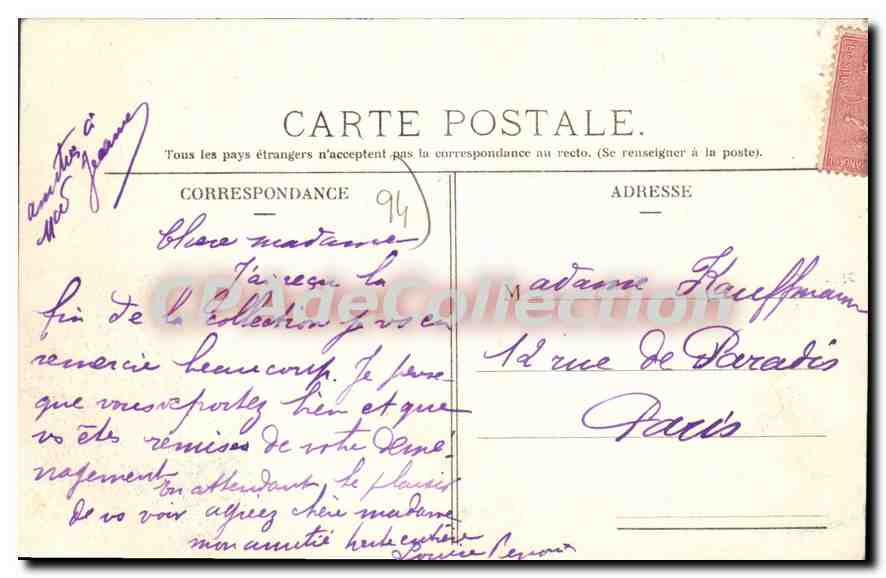 CARTE POSTALE.
Tous les pays étrangers n'acceptent pas la correspondance au recto. (Se renseigner à la poste).
CORRESPONDANCE
94
ADRESSE
amitiés à
Jeanne
Chere madame
J'ai reçu la
fin de la collection je vs en
remercie beaucoup. Je pense
que vous vs portez bien et que
vs êtes remises de votre démé-
nagement
En attendant le plaisir
de vs voir agreez chère madame
mon amitié
Louise
Madame Kauffmann
12 rue de Paradis
Paris
CPAdeCollection